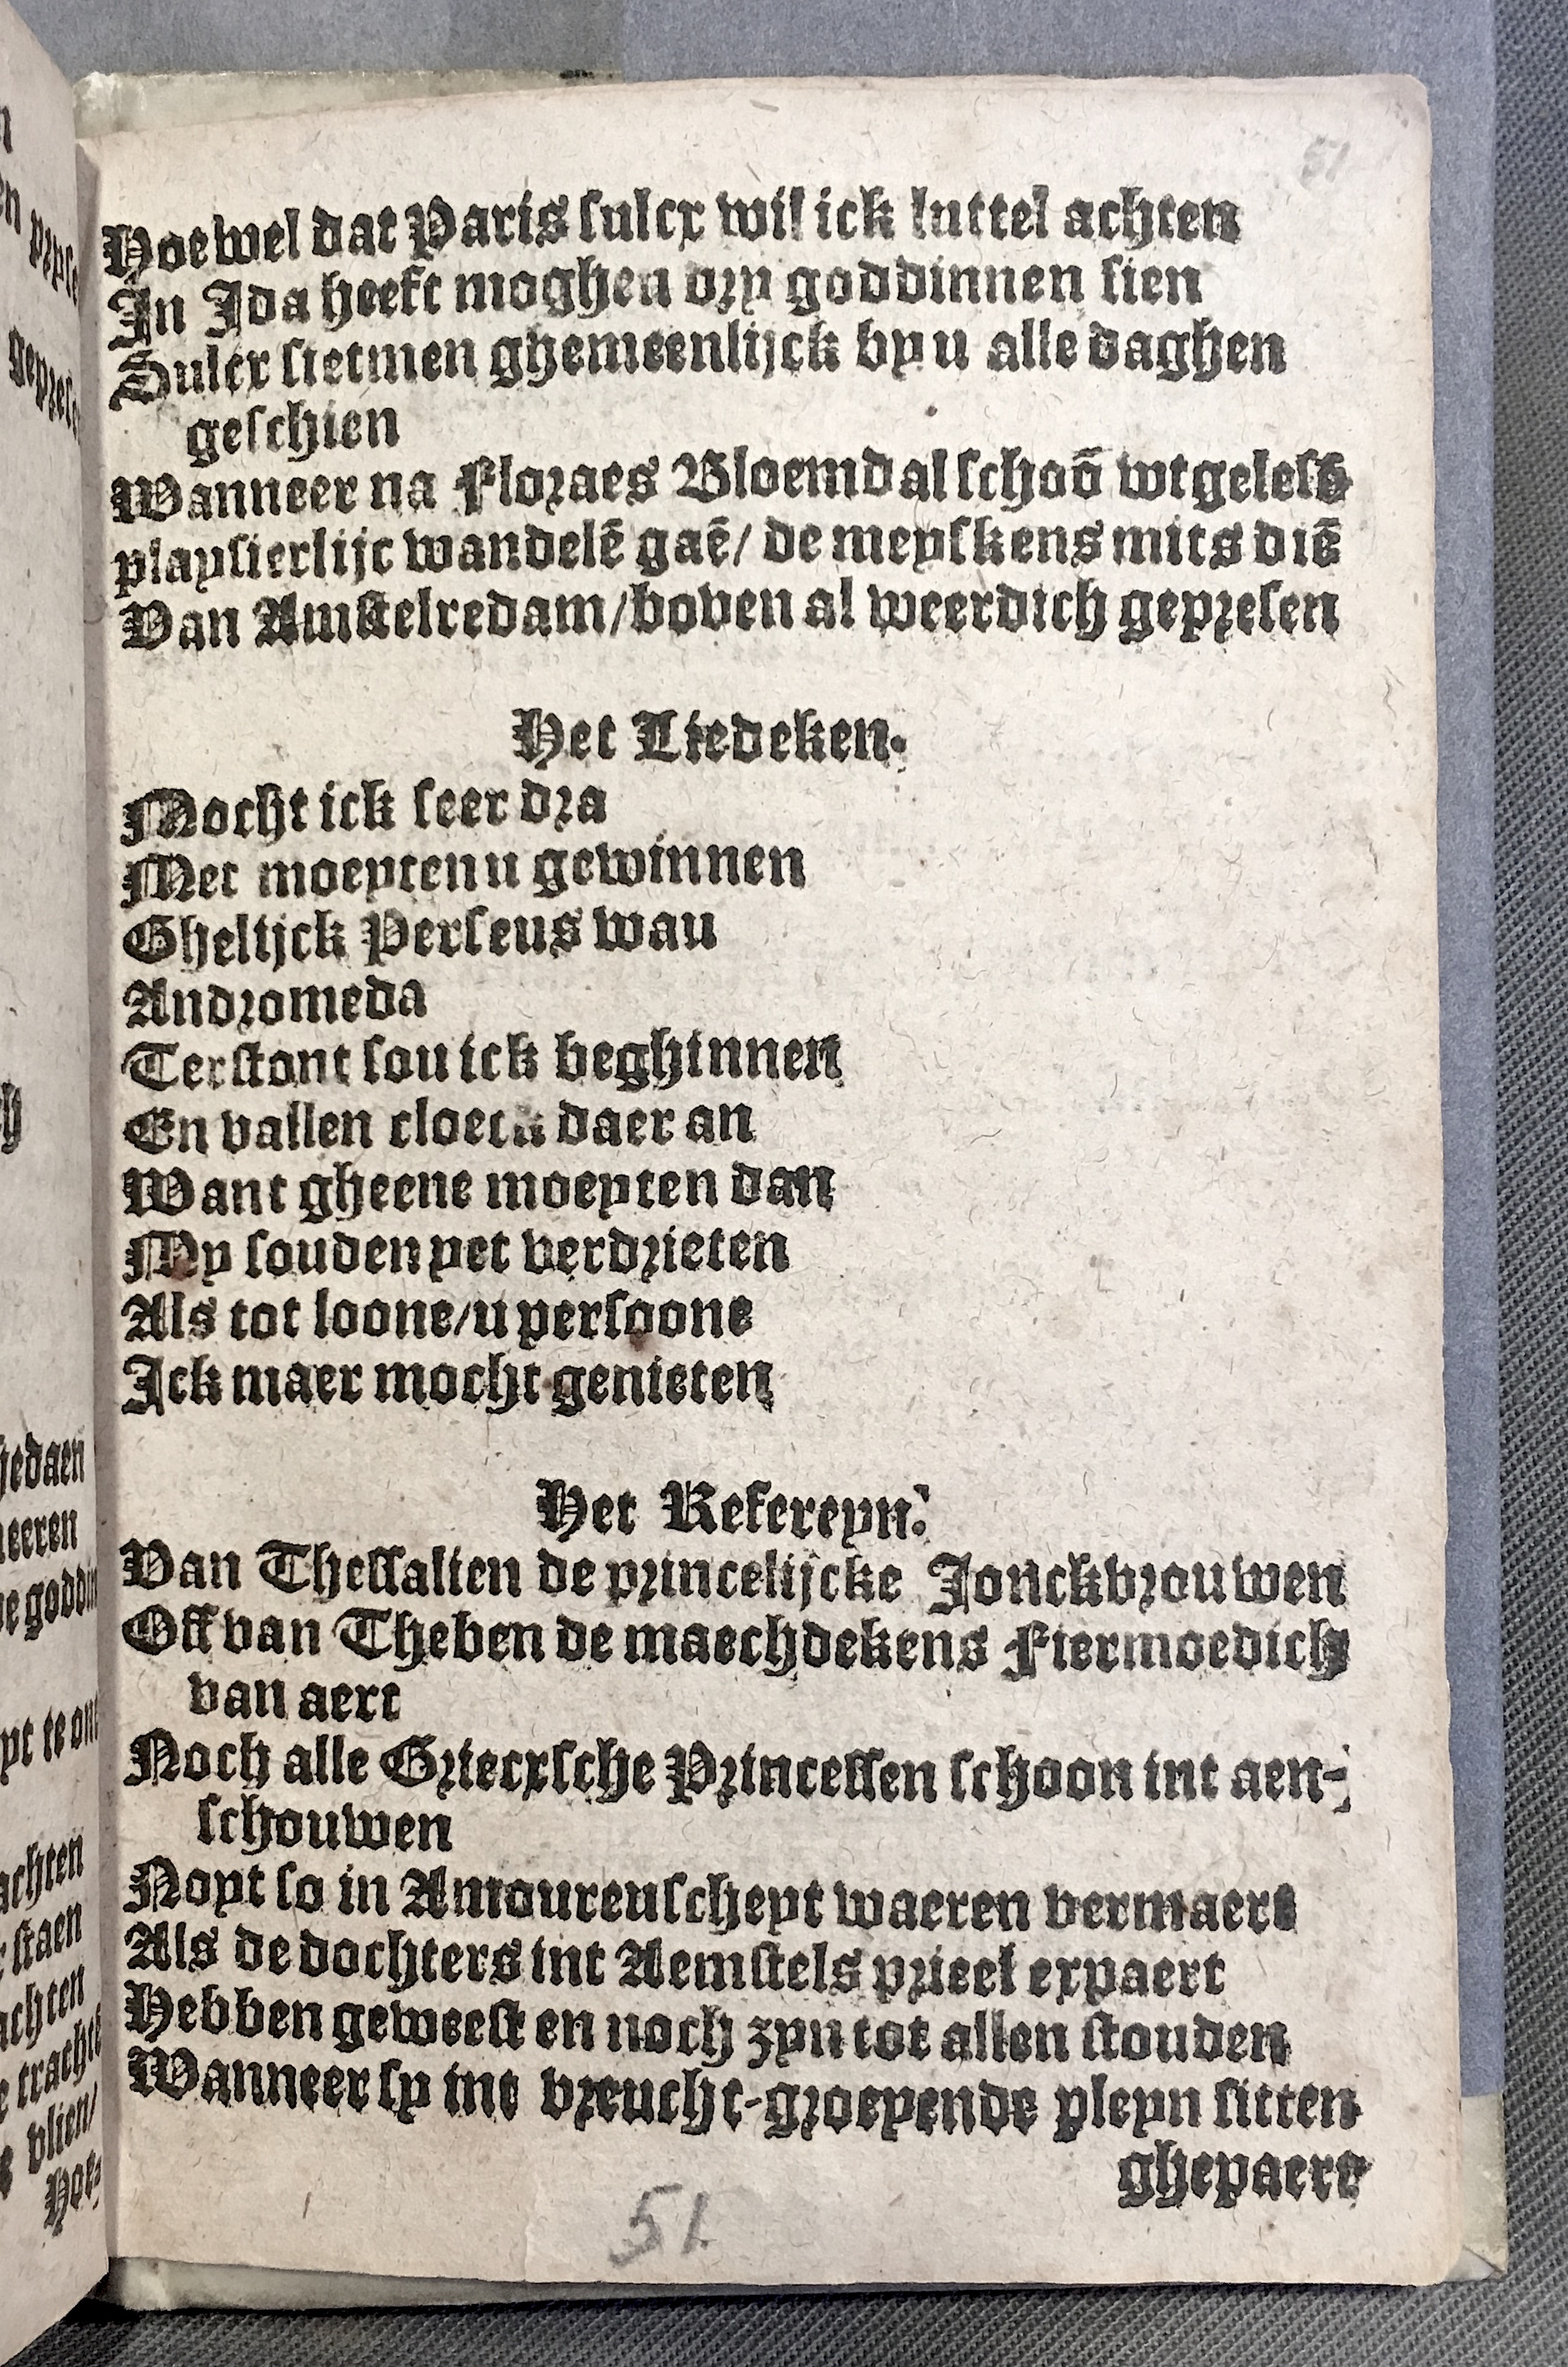 51
Hoewel dat Paris sulcx wil ick luttel achten
In Ida heeft moghen dry goddinnen sien
Sulcx sietmen ghemeenlijck by u alle daghen
geschien
Wanneer na Floraes Bloemdal schoō wtgelesē
playsierlijc wandelē gaē/ de meyskens mits diē
Van Amstelredam/boven al weerdich gepresen
Het Liedeken.
Mocht ick seer dra
Met moeyten u gewinnen
Ghelijck Perseus wau
Andromeda
Terstont sou ick beghinnen
En vallen cloeck daer an
Want gheene moeyten dan
My souden yet verdrieten
Als tot loone/u persoone
Ick maer mocht genieten
Het Refereyn.
Van Thessalien de princelijcke Jonckvrouwen
Off van Theben de maechdekens Fiermoedich
van aert
Noch alle Griecxsche Princessen schoon int aen-
schouwen
Noyt so in Amoureuscheyt waeren vermaert
Als de dochters int Aemstels prieel expaert
Hebben geweest en noch zyn tot allen stouden
Wanneer sy int vreucht-groeyende pleyn sitten
ghepaert
51.
ghedaen
staen
achten
vlien/
Hoe-